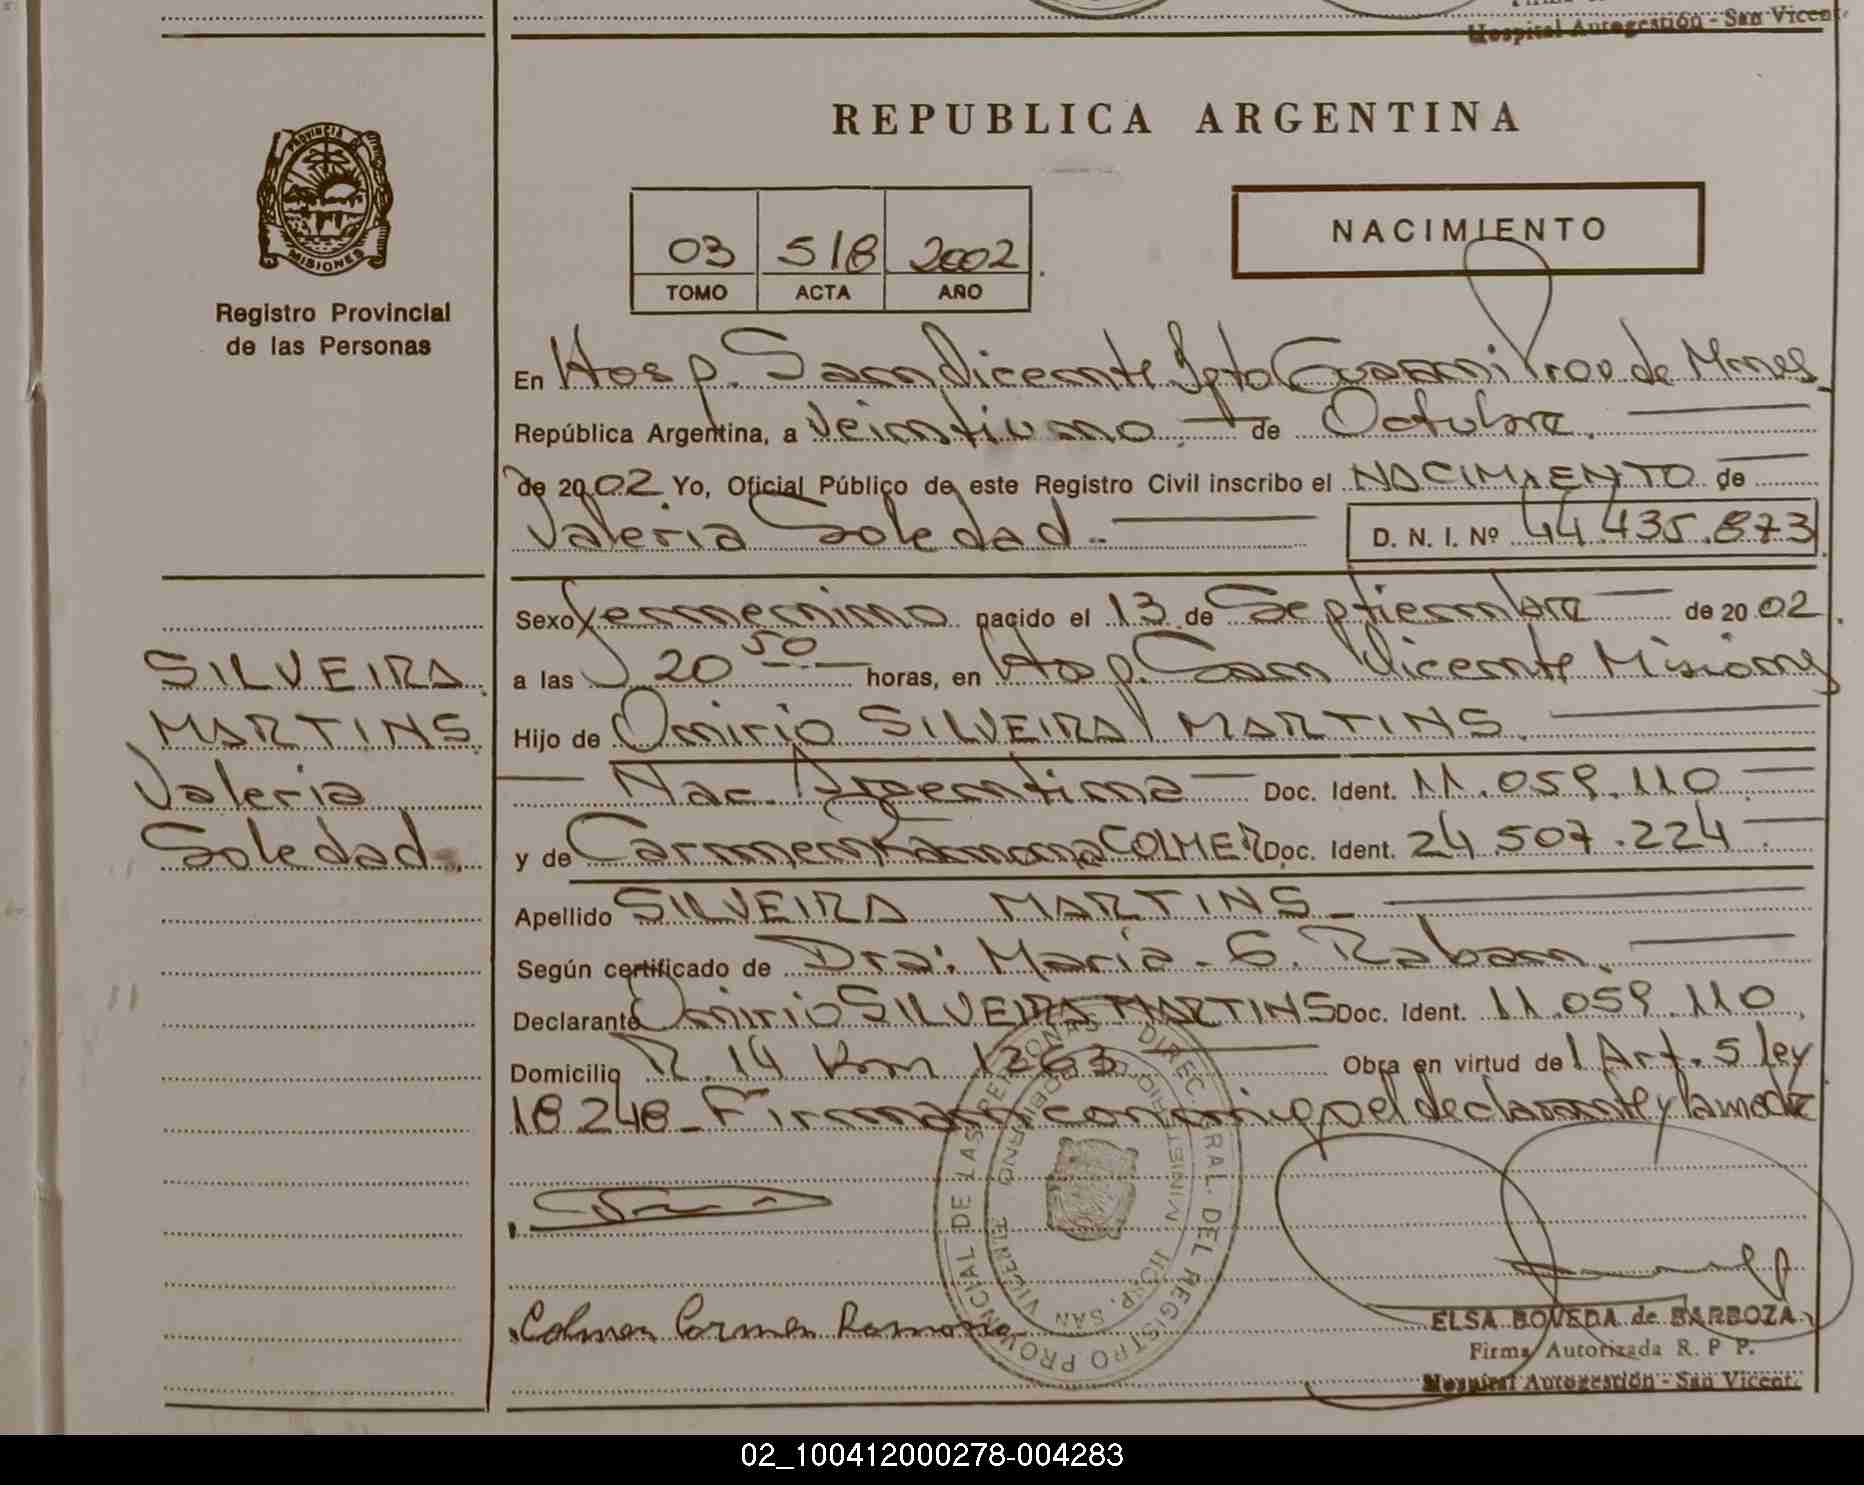 Hospital Autogestión - San Vicent.
PROVINCIA DE
MISIONES
Registro Provincial
de las Personas
REPUBLICA ARGENTINA
03 518 2002
TOMO ACTA AÑO
NACIMIENTO
En Hosp. San Vicente Dpto Guarani Prov de Mnes.
República Argentina, a veintiuno de Octubre.
de 2002 Yo, Oficial Público de este Registro Civil inscribo el NACIMIENTO de
Valeria Soledad.- D. N. I. Nº 44.435.873
Sexo femenino nacido el 13 de Septiembre de 20 02
a las 20 50 horas, en Hosp. San Vicente Misiones
Hijo de Omirio SILVEIRA MARTINS.
Nac. Argentina Doc. Ident. 11.059.110
y de Carmen Ramona COLMER Doc. Ident. 24.507.224
Apellido SILVEIRA MARTINS
Según certificado de Dra: Maria - G. Raban.
Declarante Omirio SILVEIRA MARTINS Doc. Ident. 11.059.110
Domicilio R. 14 Km 1263 Obra en virtud del Art. 5 ley
18248 - Firman conmigo el declarante y la madre
SILVEIRA
MARTINS
Valeria
Soledad.
Colmer Carmen Ramona
REGISTRO PROVINCIAL DE LAS PERSONAS DIREC. GRAL. DEL
MINISTERIO DE GOBIERNO
HOSP. SAN VICENTE
ELSA BOVEDA de BARBOZA
Firma Autorizada R. P P.
Hospital Autogestión - San Vicent.
02_100412000278-004283